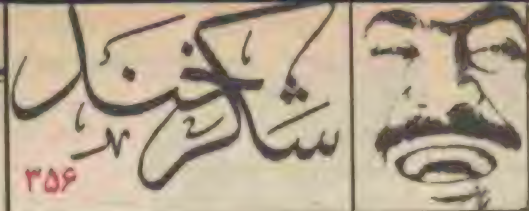 شاکر خند
۳۵۶